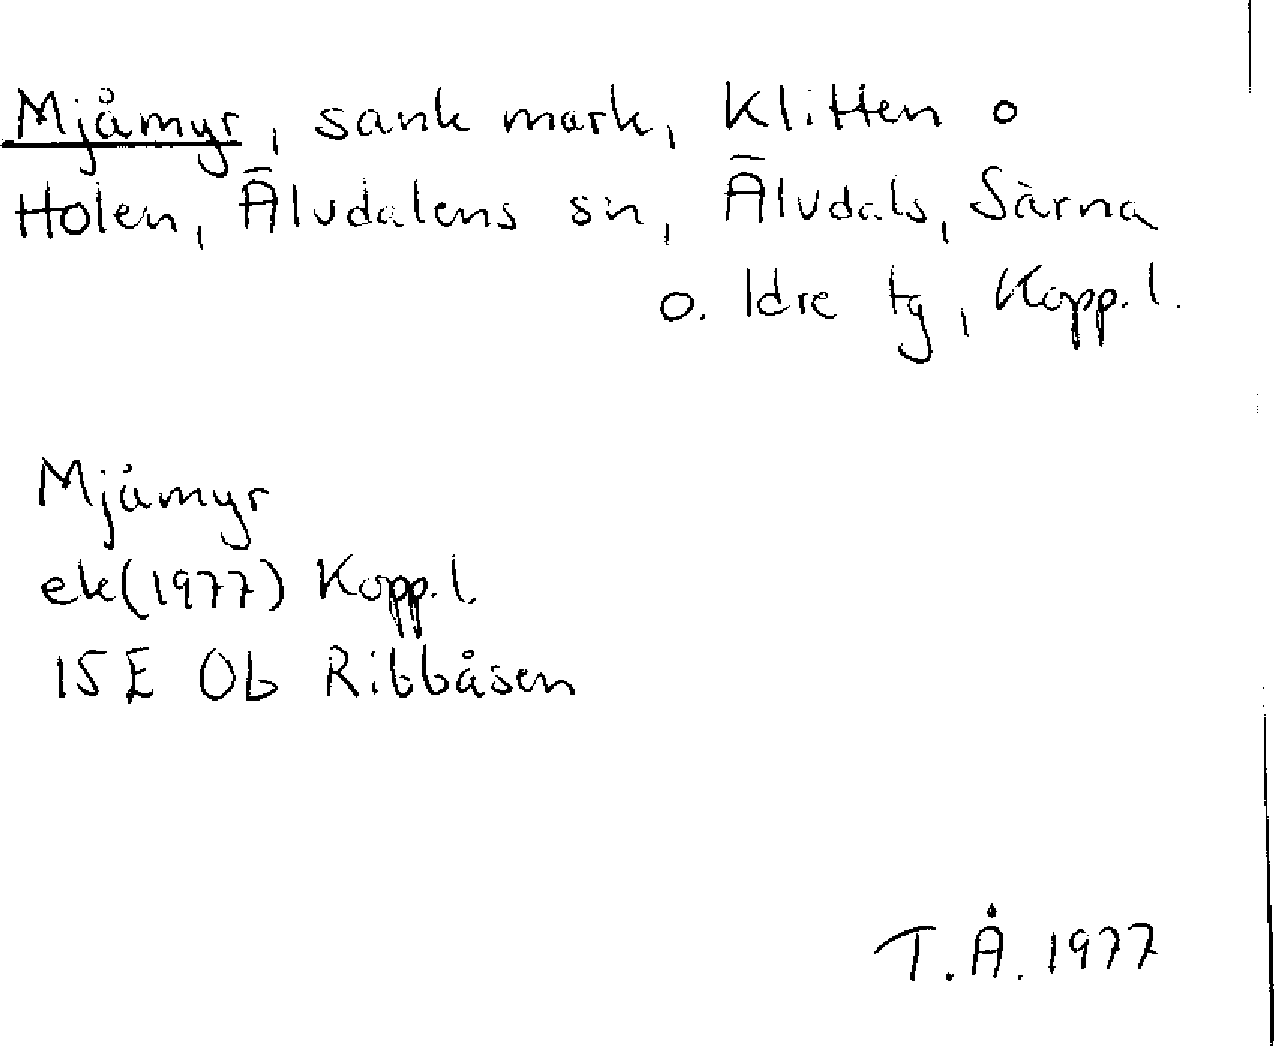 Mjåmyr, sank mark, Klitten o
Holen, Älvdalens sn, Älvdals, Särna
o. Idre tg, Kopp. l.
Mjåmyr
ek(1977) Kopp. l.
15 E 0b Ribbåsen
T. Å. 1977